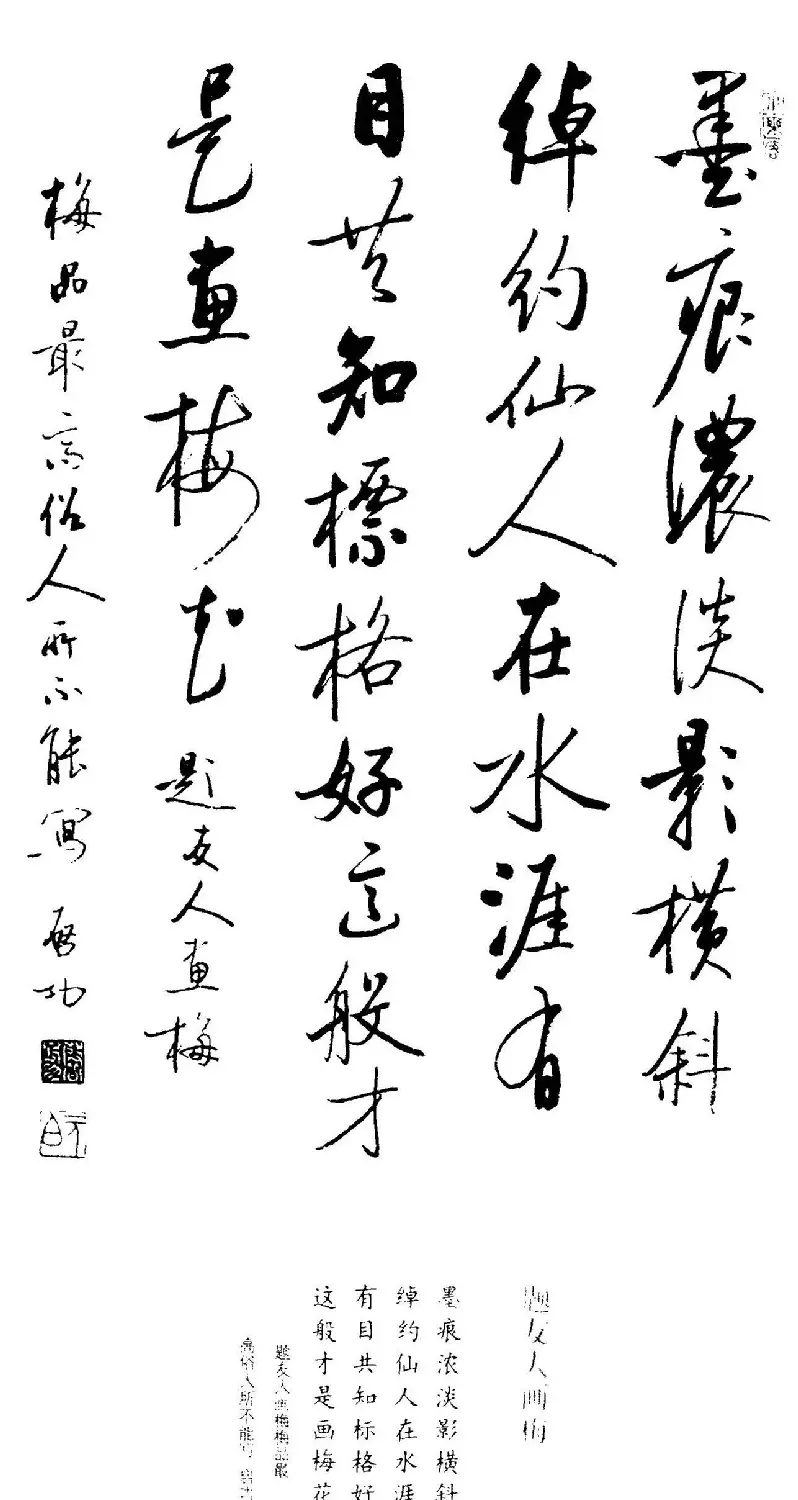 墨痕濃淡影橫斜
綽約仙人在水涯有
目共知標格好這般才
是畫梅花 題友人畫梅
梅品最高俗人所不能寫 啓功
题友人画梅
墨痕浓淡影横斜
绰约仙人在水涯
有目共知标格好
这般才是画梅花
题友人画梅梅品最
高俗人所不能写